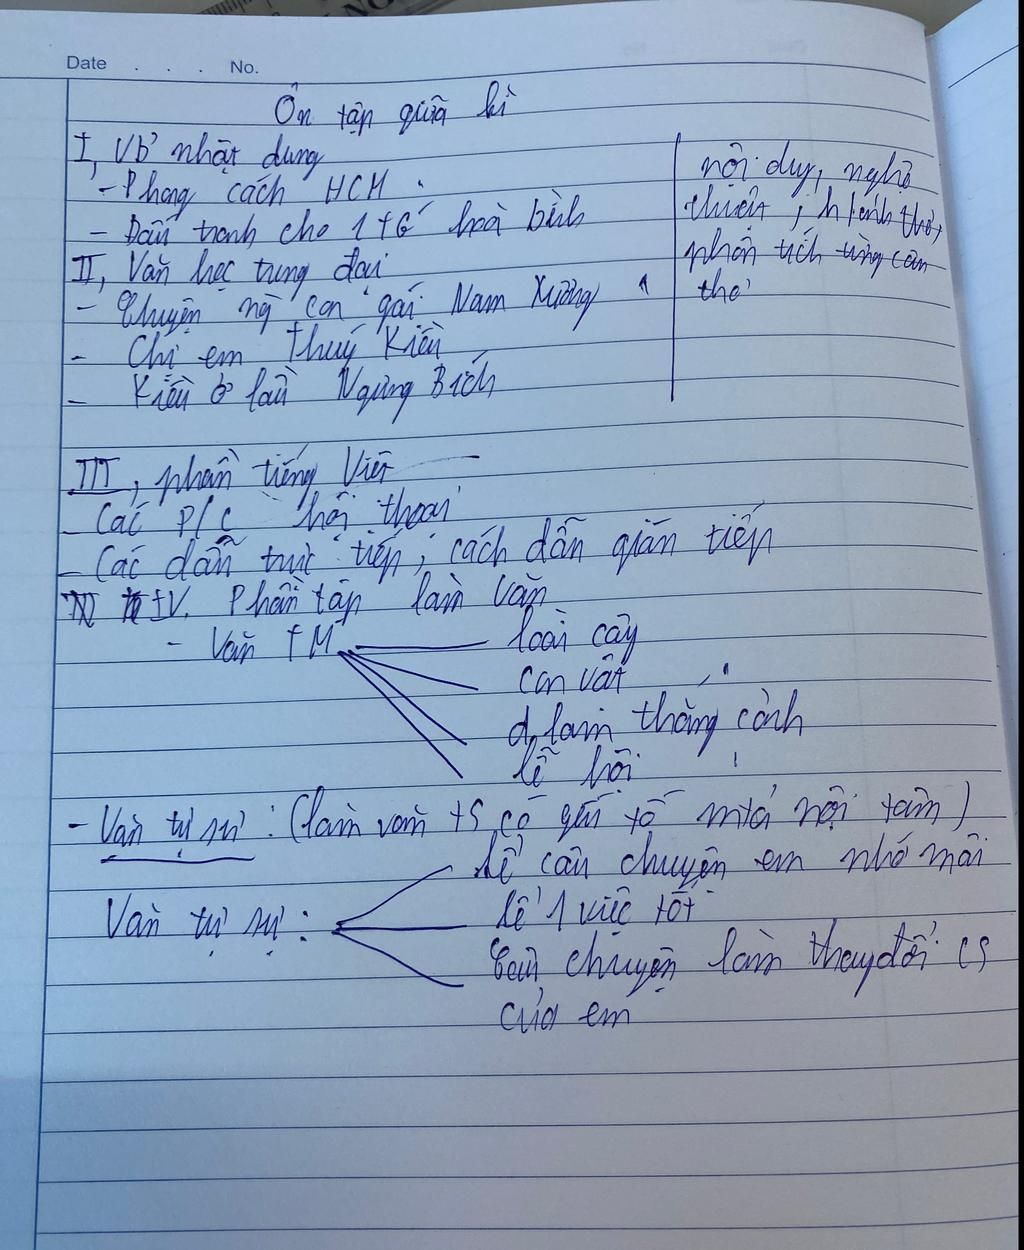 Date . . . No.
Ôn tập giữa kì
I, VB nhật dụng
- Phong cách HCM.
- Đấu tranh cho 1 TG hoà bình
II, Văn học trung đại
- Chuyện ng con gái Nam Xương
- Chị em Thuý Kiều
- Kiều ở lầu Ngưng Bích
nội duy, nghệ
thuật,
phân tích từng câu
thơ
III, phần tiếng Việt
- Các P/C hội thoại
- Các dẫn trực tiếp, cách dẫn gián tiếp
IV. Phần tập làm văn
- Văn TM
loài cây
con vật
d, lam thắng cảnh
lễ hội
- Văn tự sự: (làm văn TS có yếu tố mtả nội tâm)
kể câu chuyện em nhớ mãi
Văn tự sự:
kể 1 việc tốt
Câu chuyện làm thay đổi CS
của em